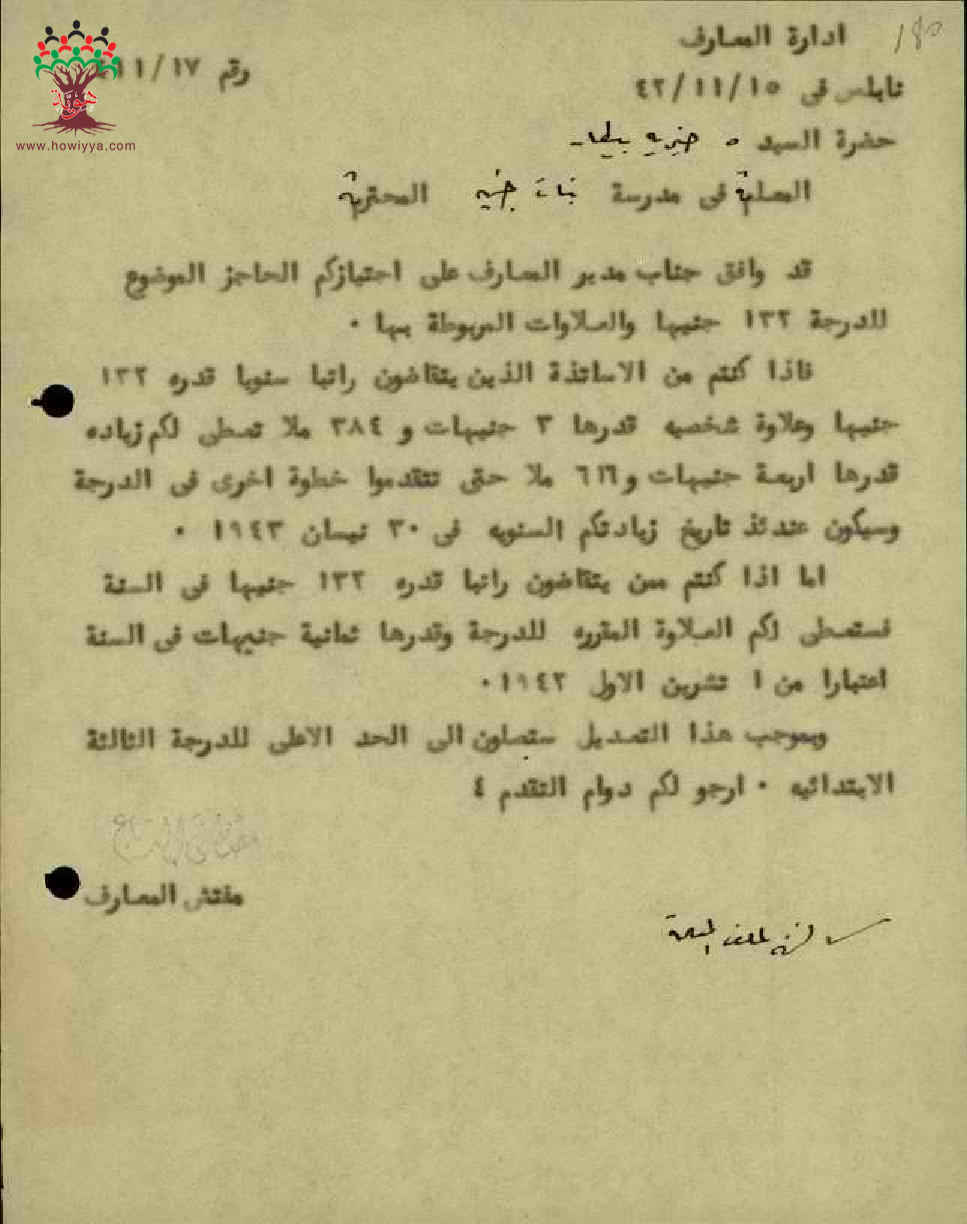 ادارة المعارف
نابلس فى ٤٢/١١/١٥
رقم ١١/١٧
هوية
www.howiyya.com
حضرة السيد ه خيريه بيطار
المعلمة فى مدرسة بنات المحترمة
قد وافق جناب مدير المعارف على اجتيازكم الحاجز الموضوع
للدرجة ١٣٢ جنيها والعلاوات المربوطة بها ٠
فاذا كنتم من الاساتذة الذين يتقاضون راتبا سنويا قدره ١٣٢
جنيها وعلاوة شخصيه قدرها ٣ جنيهات و ٣٨٤ ملا تعطى لكم زياده
قدرها اربعة جنيهات و ٦١٦ ملا حتى تتقدموا خطوة اخرى فى الدرجة
وسيكون عندئذ تاريخ زيادتكم السنويه فى ٣٠ نيسان ١٩٤٣ ٠
اما اذا كنتم ممن يتقاضون راتبا قدره ١٣٢ جنيها فى السنة
فستعطى لكم العلاوة المقرره للدرجة وقدرها ثمانية جنيهات فى السنة
اعتبارا من ١ تشرين الاول ١٩٤٢ ٠
وبموجب هذا التعديل ستصلون الى الحد الاعلى للدرجة الثالثة
الابتدائيه ٠ ارجو لكم دوام التقدم ٤
مفتش المعارف